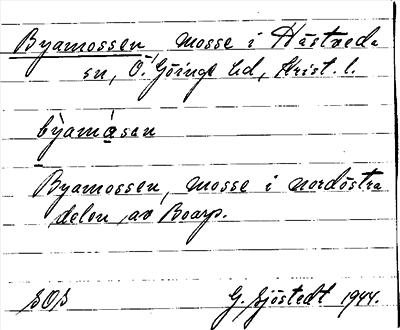 Byamossen, mosse i Hästveda
sn, Ö. Göinge hd, Krist. l.
bỳamåsan
Byamossen, mosse i nordöstra
delen av Boarp.
SOS G. Sjöstedt 1944.